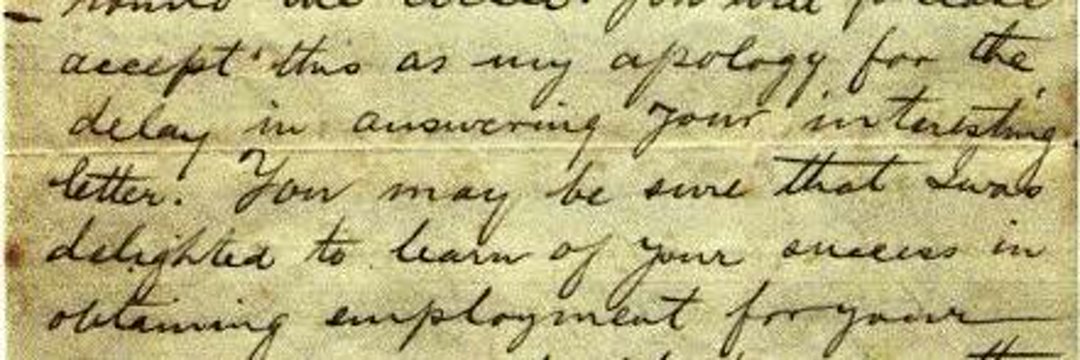 You will please
accept this as my apology for the
delay in answering your interesting
letter. You may be sure that I was
delighted to learn of your success in
obtaining employment for your